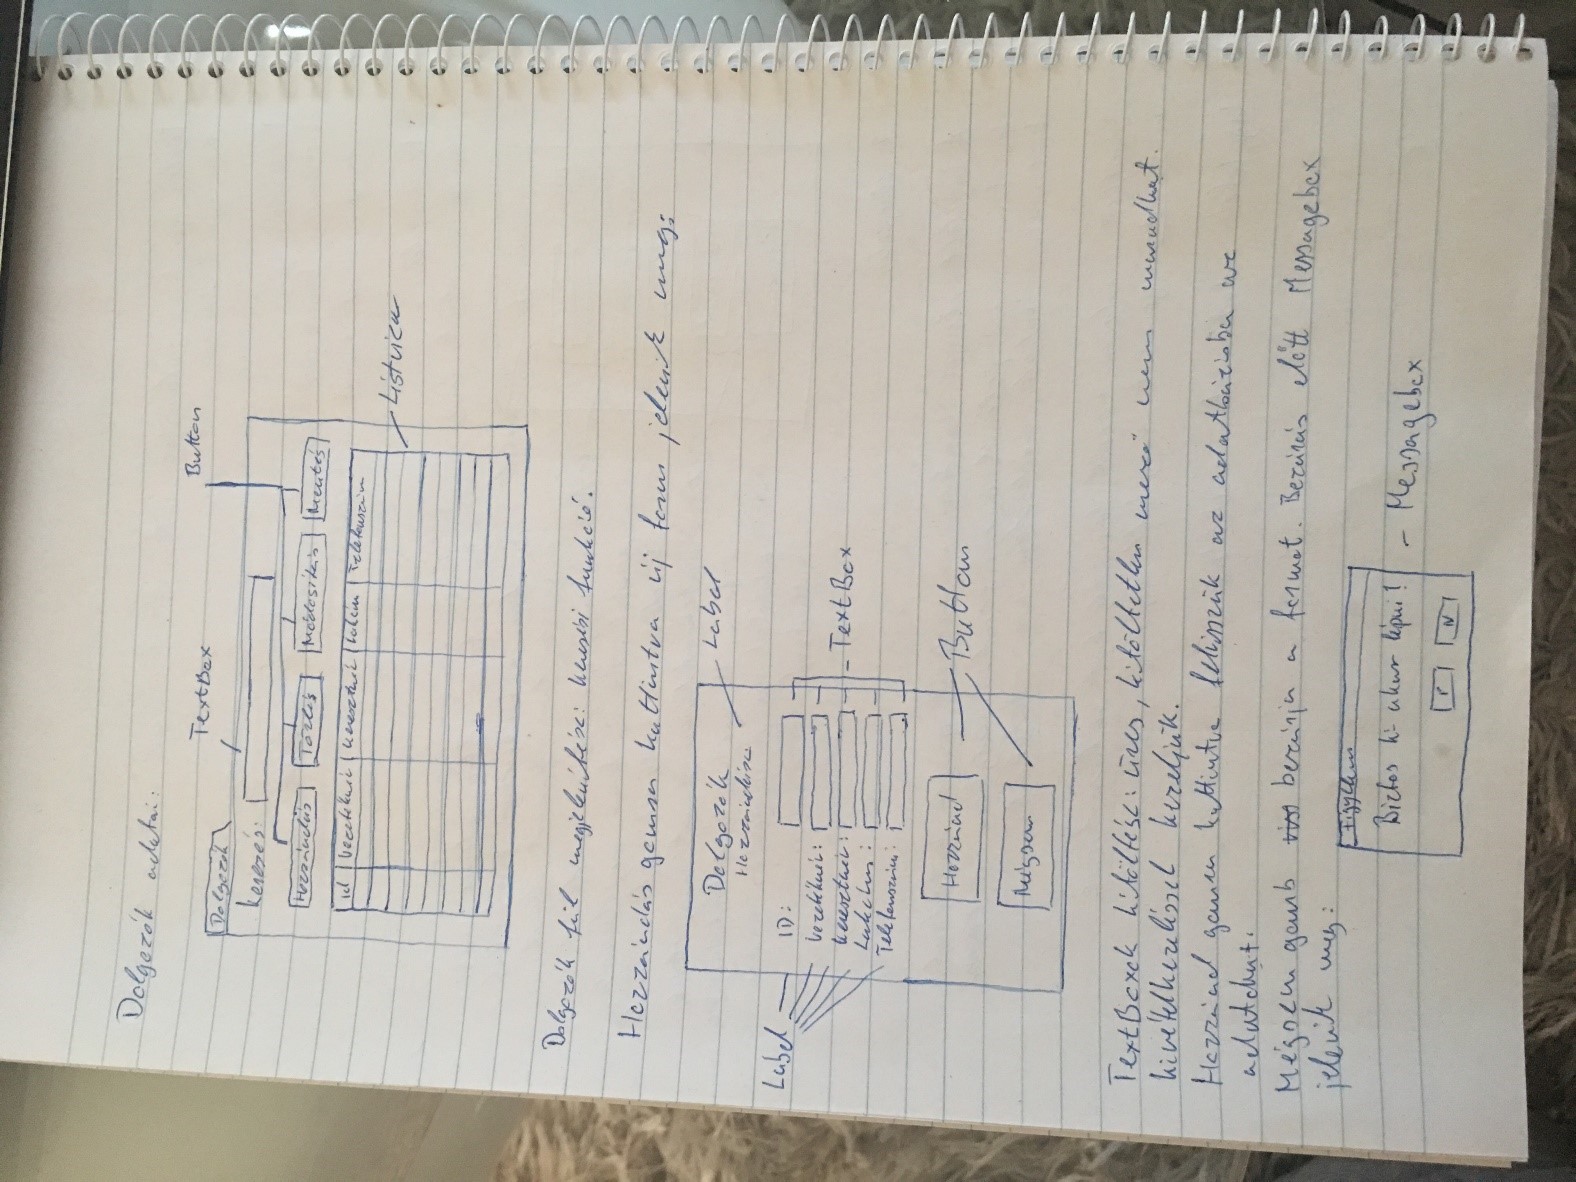 Dolgozók adatai:
TextBox
Button
Dolgozók
Keresés:
Hozzáadás Törlés Módosítás Mentés
Id Vezetéknév Keresztnév Lakcím Telefonszám
Listview
Dolgozók fül megjelenítése: keresési funkció.
Hozzáadás gombra kattintva új form jelenik meg:
Dolgozók
Hozzáadása
Label
Label
ID:
Vezetéknév:
Keresztnév:
Lakcím:
Telefonszám:
TextBox
Hozzáad
Button
Mégsem
TextBoxok kitöltése: üres, kitöltetlen mező nem maradhat.
kivételkezeléssel kezeljük.
Hozzáad gombra kattintva felvisszük az adatbázisba az
adatokat.
Mégsem gomb bezárja a formot. Bezárás előtt Messagebox
jelenik meg:
Figyelem
Biztos ki akar lépni?
I N
- Messagebox